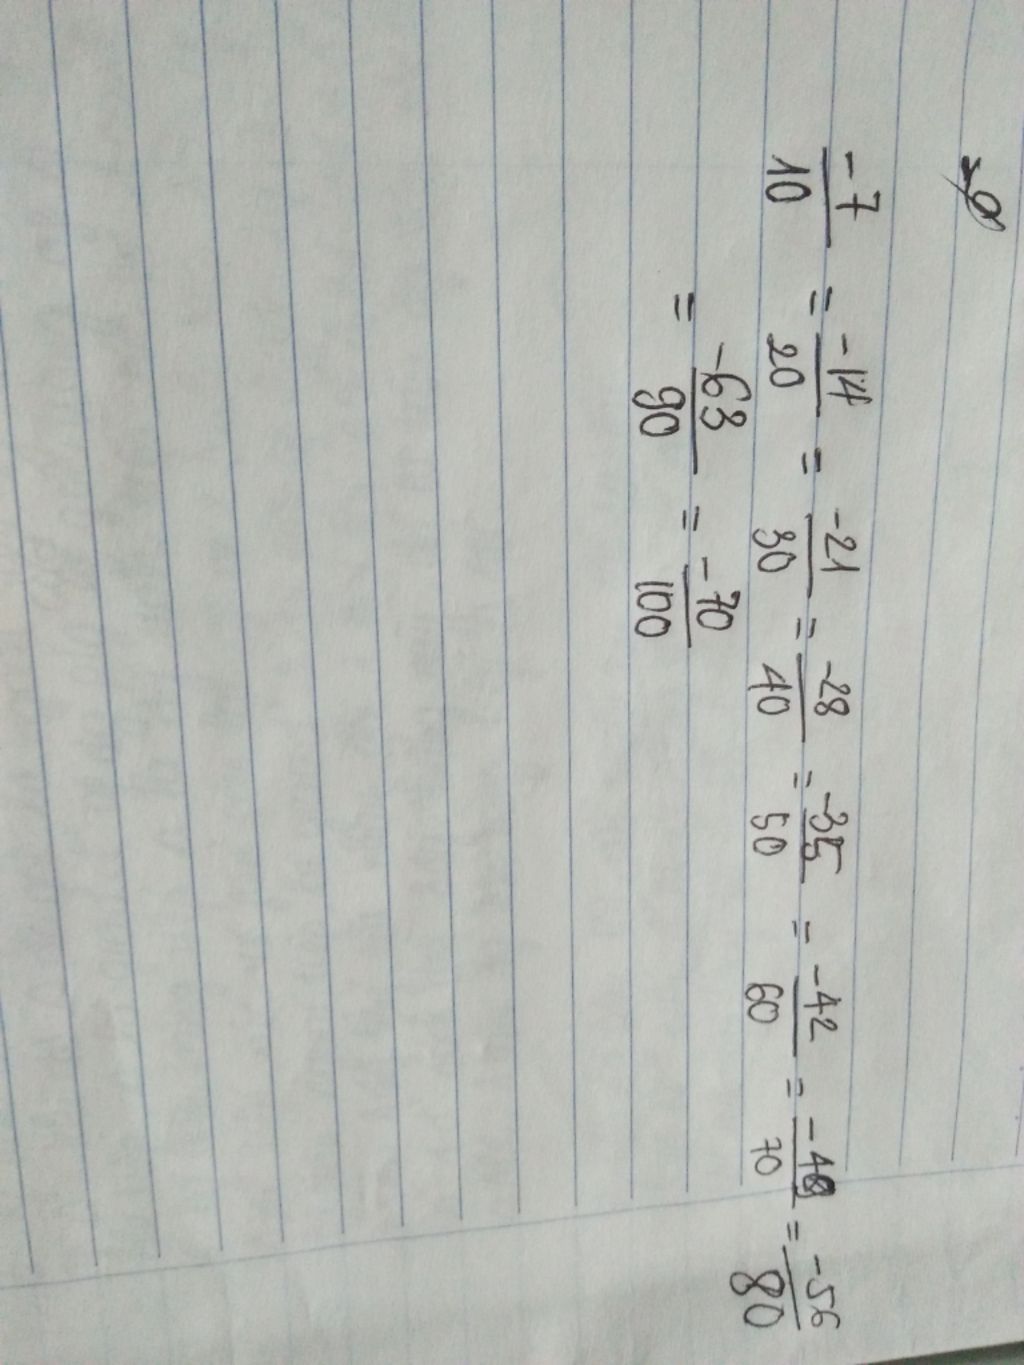 -7/10 = -14/20 = -21/30 = -28/40 = -35/50 = -42/60 = -49/70 = -56/80
= -63/90 = -70/100